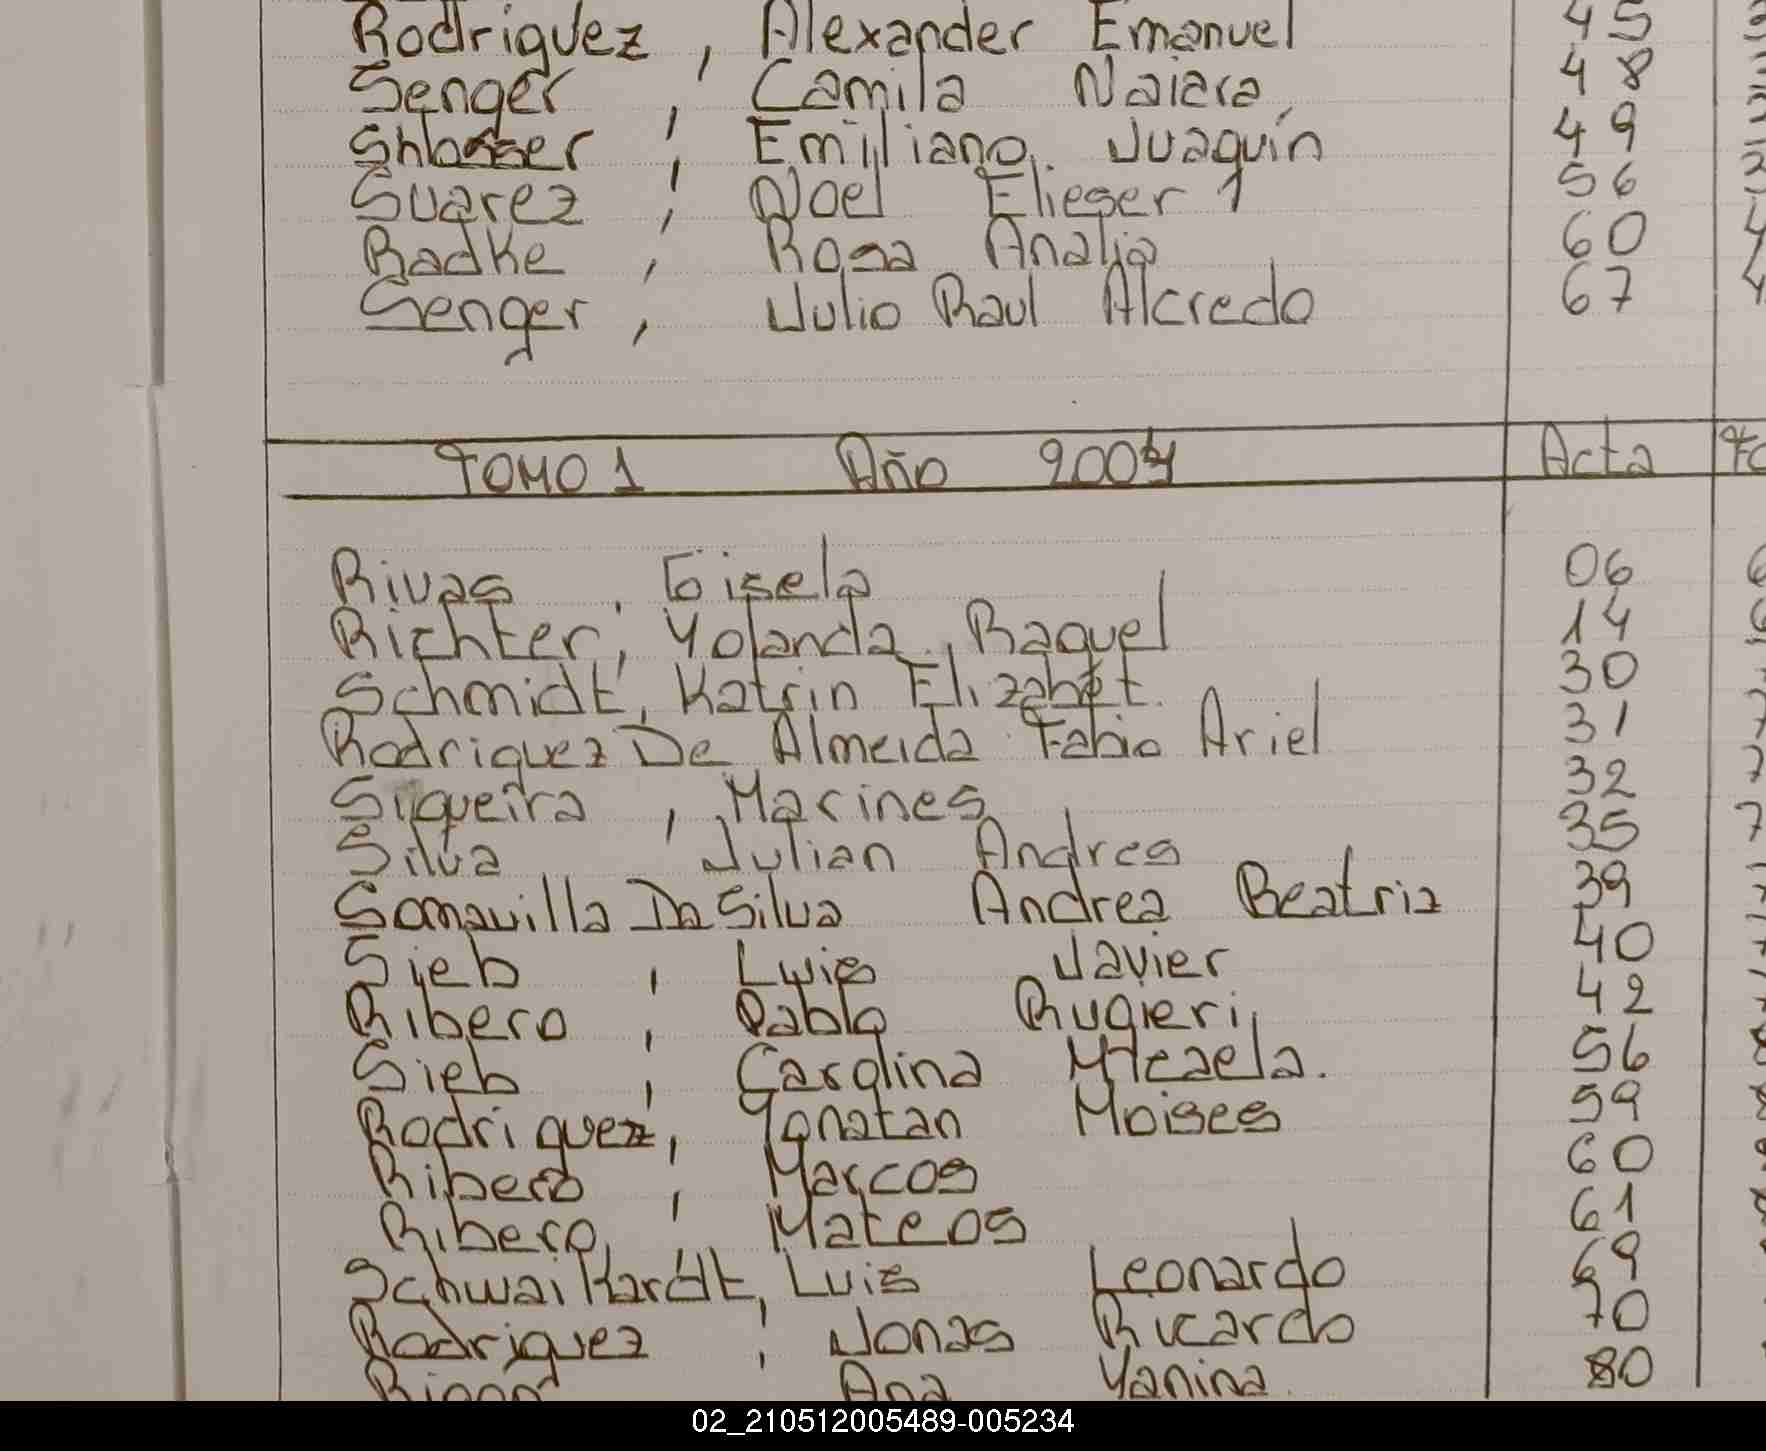 Rodriguez, Alexander Emanuel 45
Senger, Camila Naiara 48
Shlosser, Emiliano Juaquín 49
Suarez, Noel Elieser 56
Radke, Rosa Analia 60
Senger, Julio Raul Alcredo 67
TOMO 1 Año 2004 Acta
Rivas, Gisela 06
Richter, Yolanda Raquel 14
Schmidt, Katrin Elizabet. 30
Rodriguez De Almeida Fabio Ariel 31
Siqueira, Marines 32
Silva, Julian Andres 35
Somavilla Da Silva Andrea Beatriz 39
Sieb, Luis Javier 40
Ribero, Pablo Rugieri 42
Sieb, Carolina Micaela. 56
Rodriguez, Yonatan Moises 59
Ribero, Marcos 60
Ribero, Mateos 61
Schwaikardt, Luis Leonardo 69
Rodriguez, Jonas Ricardo 70
Ana Yanina 80
02_210512005489-005234